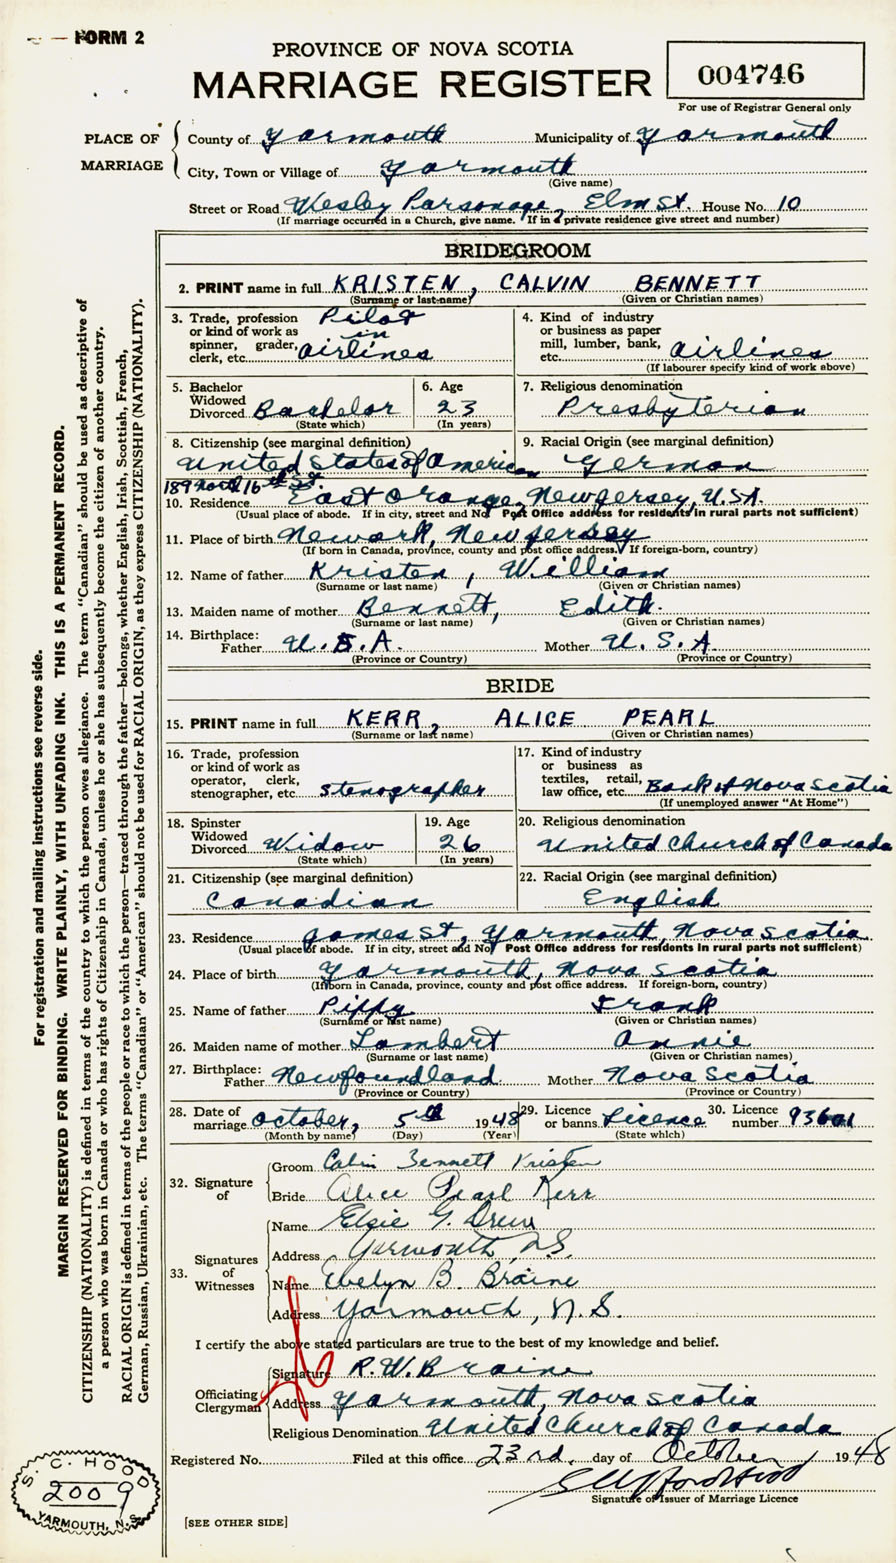 FORM 2
PROVINCE OF NOVA SCOTIA
MARRIAGE REGISTER
004746
For use of Registrar General only
PLACE OF MARRIAGE
County of Yarmouth Municipality of Yarmouth
City, Town or Village of Yarmouth
(Give name)
Street or Road Wesley Parsonage, Elm St. House No. 10
(If marriage occurred in a Church, give name. If in a private residence give street and number)
BRIDEGROOM
2. PRINT name in full KRISTEN, CALVIN BENNETT
(Surname or last name) (Given or Christian names)
3. Trade, profession or kind of work as spinner, grader, clerk, etc. Pilot in airlines
4. Kind of industry or business as paper mill, lumber, bank, etc. airlines
(If labourer specify kind of work above)
5. Bachelor Widowed Divorced Bachelor
(State which)
6. Age 23
(In years)
7. Religious denomination
Presbyterian
8. Citizenship (see marginal definition)
United States of American
9. Racial Origin (see marginal definition)
German
189 North 16th St.
10. Residence East Orange, New Jersey, U.S.A.
(Usual place of abode. If in city, street and No. Post Office address for residents in rural parts not sufficient)
11. Place of birth Newark, New Jersey
(If born in Canada, province, county and post office address. If foreign-born, country)
12. Name of father Kristen, William
(Surname or last name) (Given or Christian names)
13. Maiden name of mother Bennett, Edith.
(Surname or last name) (Given or Christian names)
14. Birthplace: Father U.S.A. Mother U.S.A.
(Province or Country) (Province or Country)
BRIDE
15. PRINT name in full KERR, ALICE PEARL
(Surname or last name) (Given or Christian names)
16. Trade, profession or kind of work as operator, clerk, stenographer, etc. Stenographer
17. Kind of industry or business as textiles, retail, law office, etc. Bank of Nova Scotia
(If unemployed answer "At Home")
18. Spinster Widowed Divorced Widow
(State which)
19. Age 26
(In years)
20. Religious denomination
United Church of Canada
21. Citizenship (see marginal definition)
Canadian
22. Racial Origin (see marginal definition)
English
23. Residence James St, Yarmouth, Nova Scotia
(Usual place of abode. If in city, street and No. Post Office address for residents in rural parts not sufficient)
24. Place of birth Yarmouth, Nova Scotia
(If born in Canada, province, county and post office address. If foreign-born, country)
25. Name of father Pippy Frank
(Surname or last name) (Given or Christian names)
26. Maiden name of mother Lambert Annie
(Surname or last name) (Given or Christian names)
27. Birthplace: Father Newfoundland Mother Nova Scotia
(Province or Country) (Province or Country)
28. Date of marriage October, 5th 1948
(Month by name) (Day) (Year)
29. Licence or banns Licence
(State which)
30. Licence number
32. Signature of
Groom Calvin Bennett Kristen
Bride Alice Pearl Kerr
33. Signatures of Witnesses
Name Elsie G. Drew
Address Yarmouth, N.S.
Name Evelyn B. Braine
Address Yarmouth, N.S.
I certify the above stated particulars are true to the best of my knowledge and belief.
Officiating Clergyman
Signature R.W. Braine
Address Yarmouth, Nova Scotia
Religious Denomination United Church of Canada
Registered No. Filed at this office 23rd. day of October 1948
Signature of Issuer of Marriage Licence
[SEE OTHER SIDE]
S. C. HOOD
2009
YARMOUTH, N.S.
For registration and mailing instructions see reverse side.
MARGIN RESERVED FOR BINDING. WRITE PLAINLY, WITH UNFADING INK. THIS IS A PERMANENT RECORD.
CITIZENSHIP (NATIONALITY) is defined in terms of the country to which the person owes allegiance. The term "Canadian" should be used as descriptive of
a person who was born in Canada or who has rights of Citizenship in Canada, unless he or she has subsequently become the citizen of another country.
RACIAL ORIGIN is defined in terms of the people or race to which the person—traced through the father—belongs, whether English, Irish, Scottish, French,
German, Russian, Ukrainian, etc. The terms "Canadian" or "American" should not be used for RACIAL ORIGIN, as they express CITIZENSHIP (NATIONALITY).